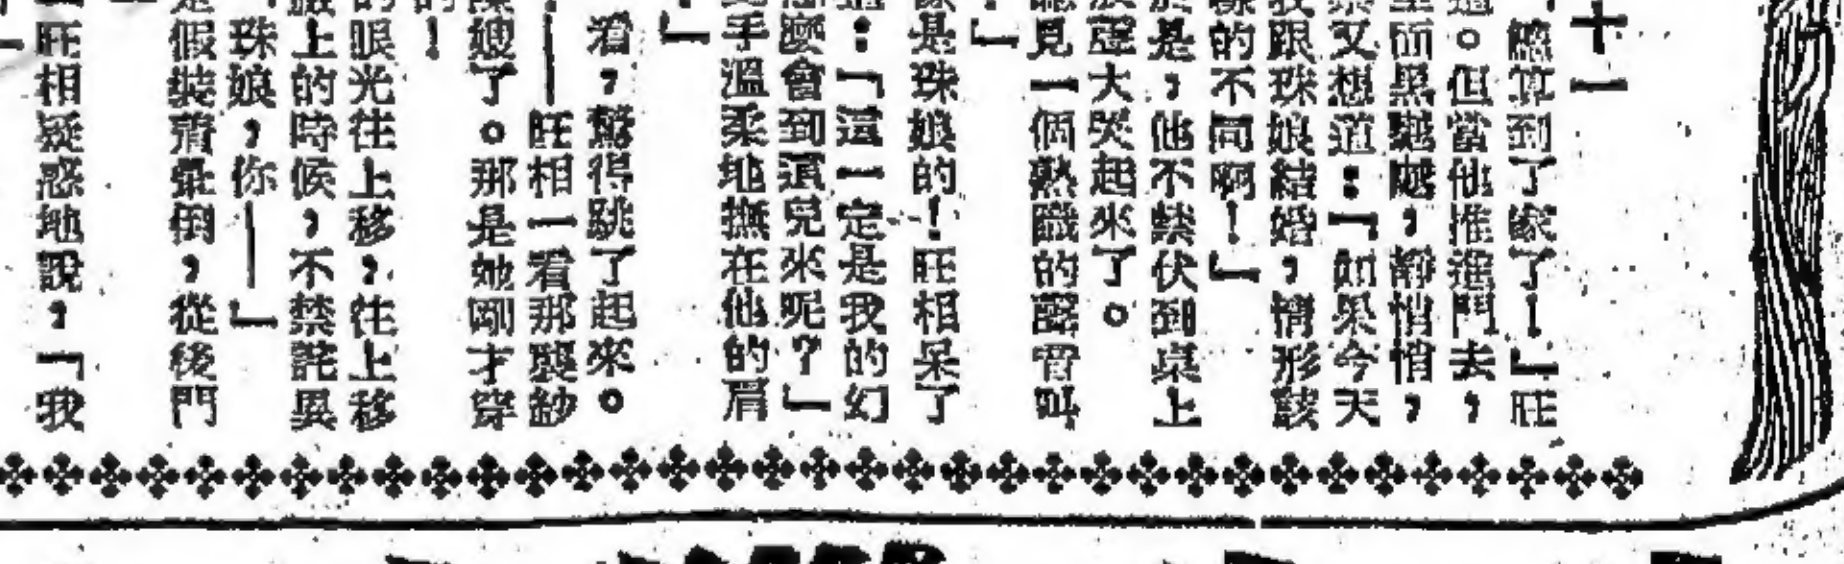 十一
總算到了家了!」旺
。但當他推進門去,
而黑魆魆,靜悄悄,
又想道:「如果今天
我跟珠娘結婚,情形該
樣的不同啊!」
於是,他不禁伏到桌上
放聲大哭起來了。
聽見一個熟識的聲音叫
」
像是珠娘的!旺相呆了
:「這一定是我的幻
麼會到這兒來呢?」
手溫柔地撫在他的肩
」
看,驚得跳了起來。
——旺相一看那襲紗
嫂了。那是她剛才穿
的!
的眼光往上移,往上移
臉上的時候,不禁詫異
珠娘,你——」
是假裝着暈倒,從後門
旺相疑惑地說,「我